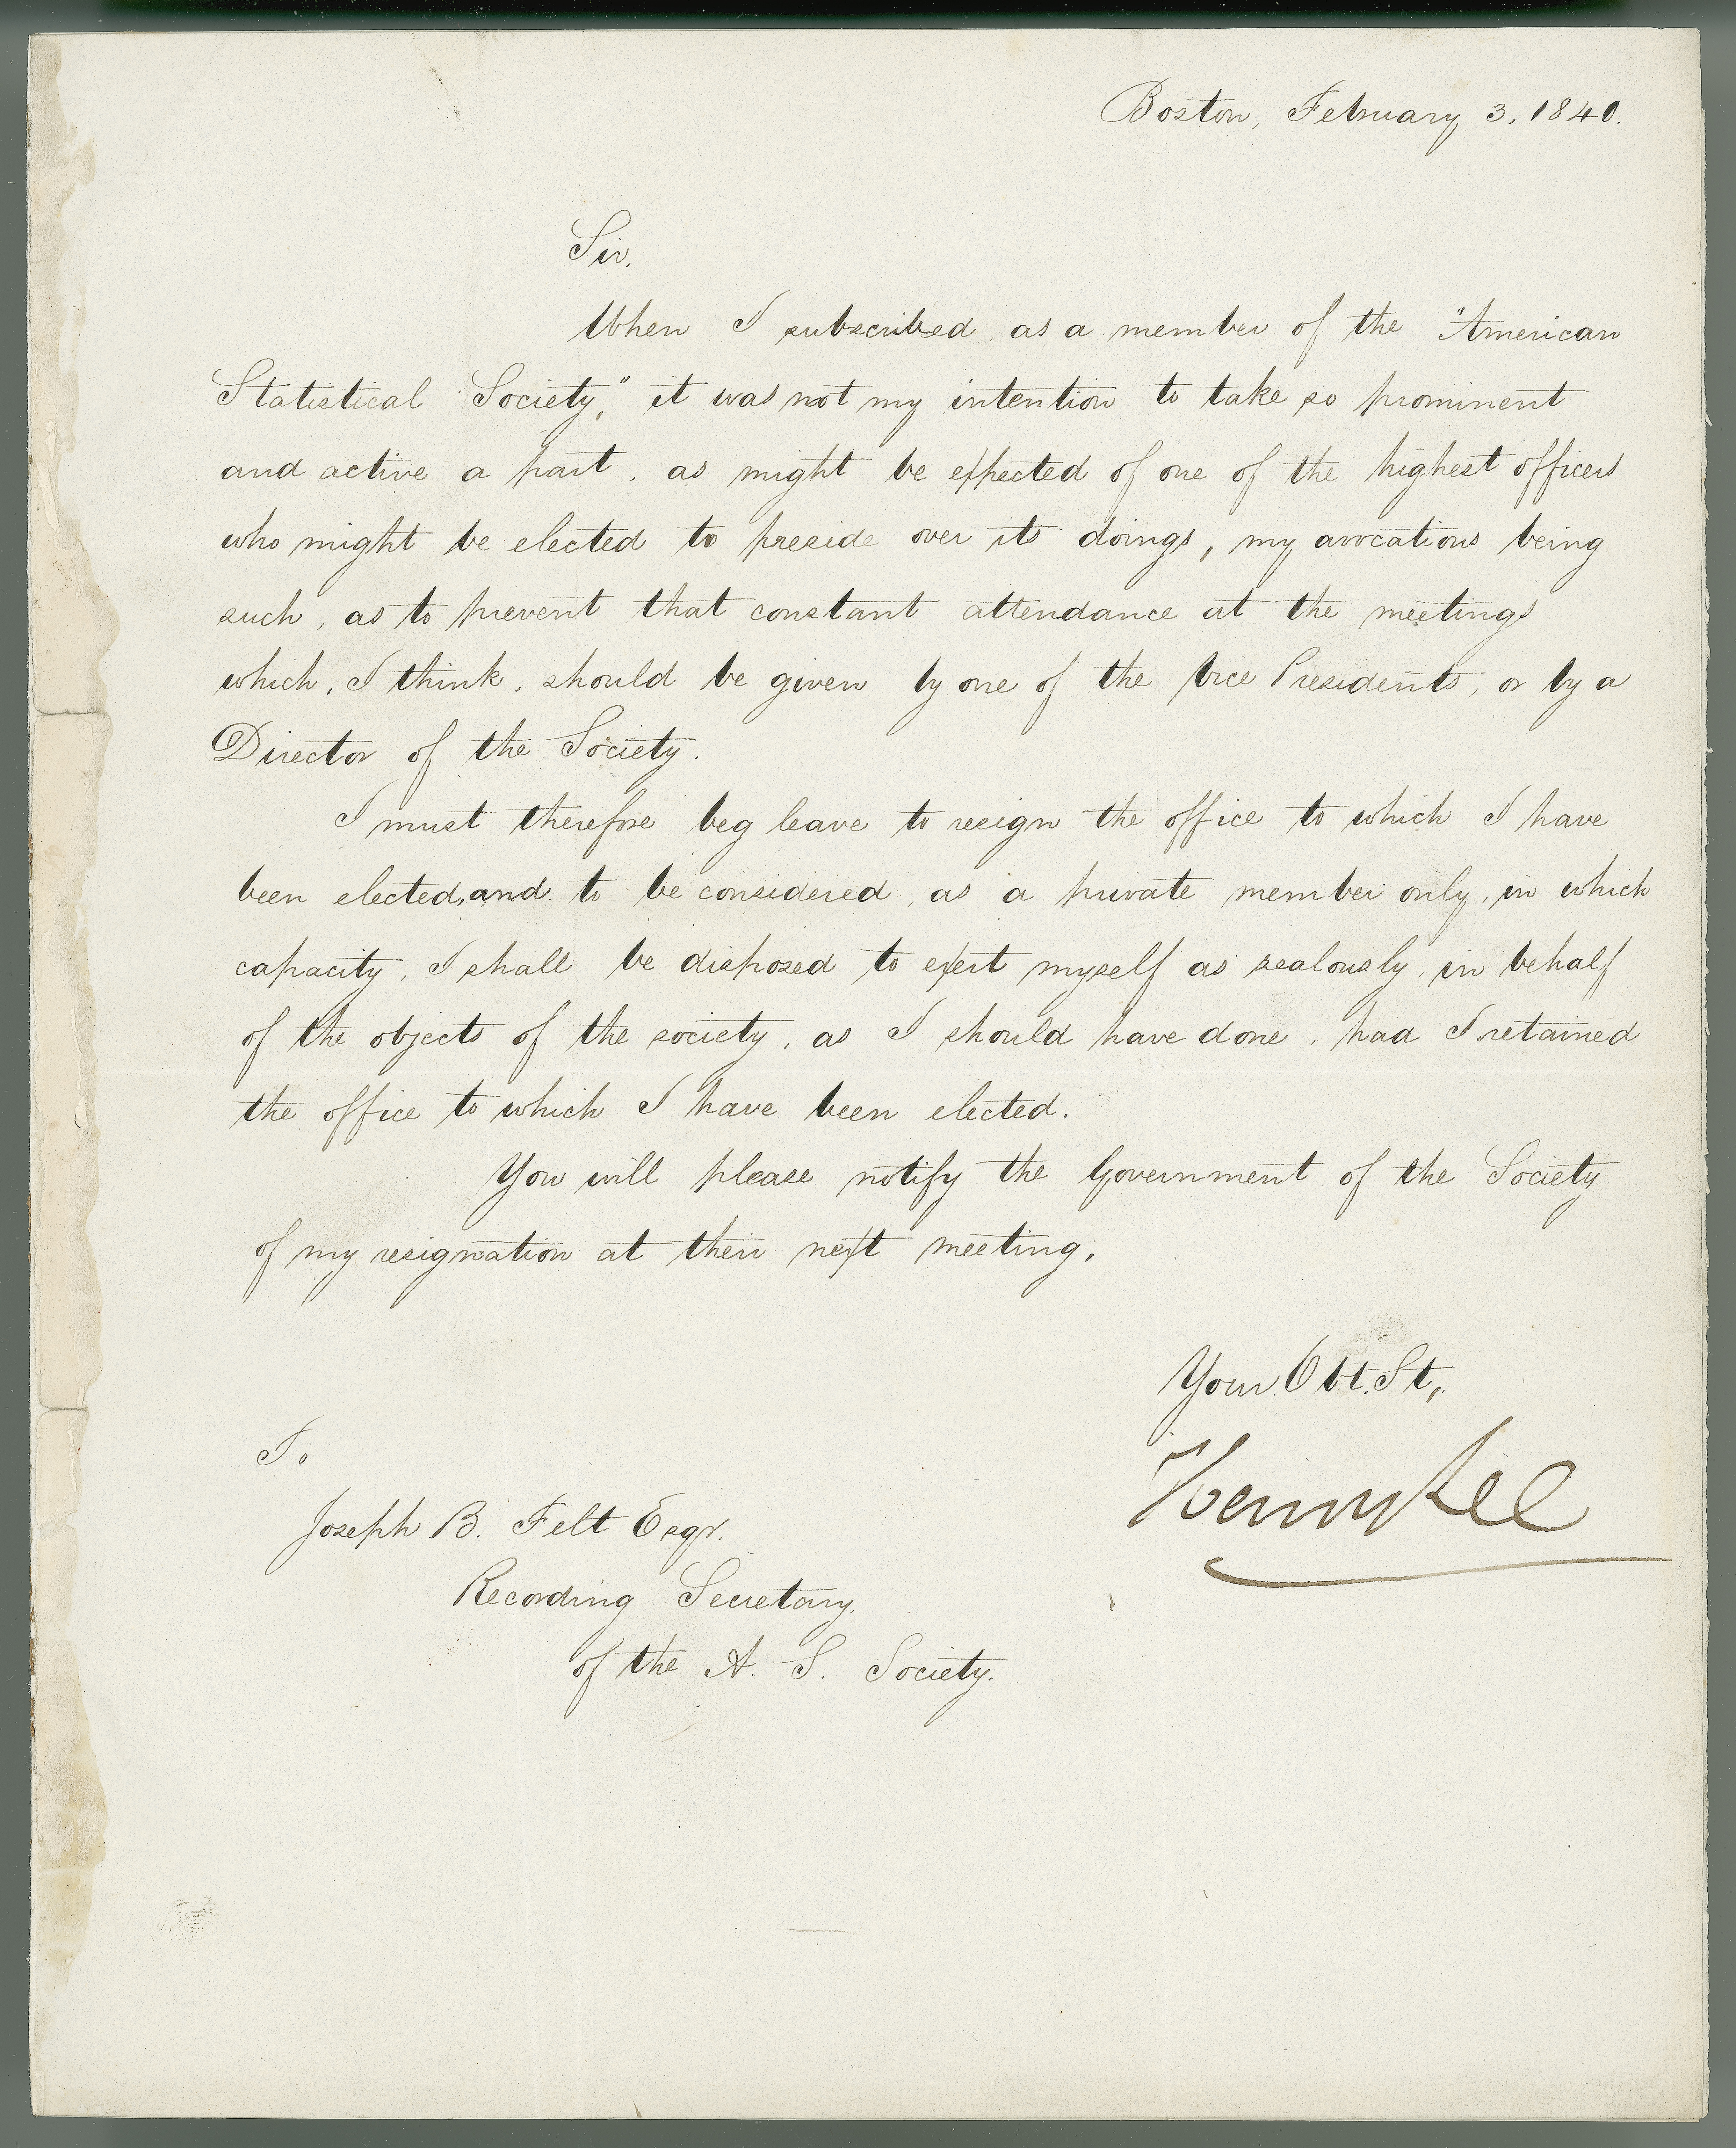 Boston, February 3, 1840.
Sir,
When I subscribed, as a member of the "American
Statistical Society," it was not my intention to take so prominent
and active a part, as might be expected of one of the highest officers
who might be elected to preside over its doings, my avocations being
such, as to prevent that constant attendance at the meetings
which, I think, should be given by one of the Vice Presidents, or by a
Director of the Society.
I must therefore beg leave to resign the office to which I have
been elected, and to be considered, as a private member only, in which
capacity, I shall be disposed to exert myself as zealously, in behalf
of the objects of the society, as I should have done, had I retained
the office to which I have been elected.
You will please notify the Government of the Society
of my resignation at their next meeting.
Your Obt. St,
Henry Lee
To
Joseph B. Felt Esqr.
Recording Secretary
of the A. S. Society.